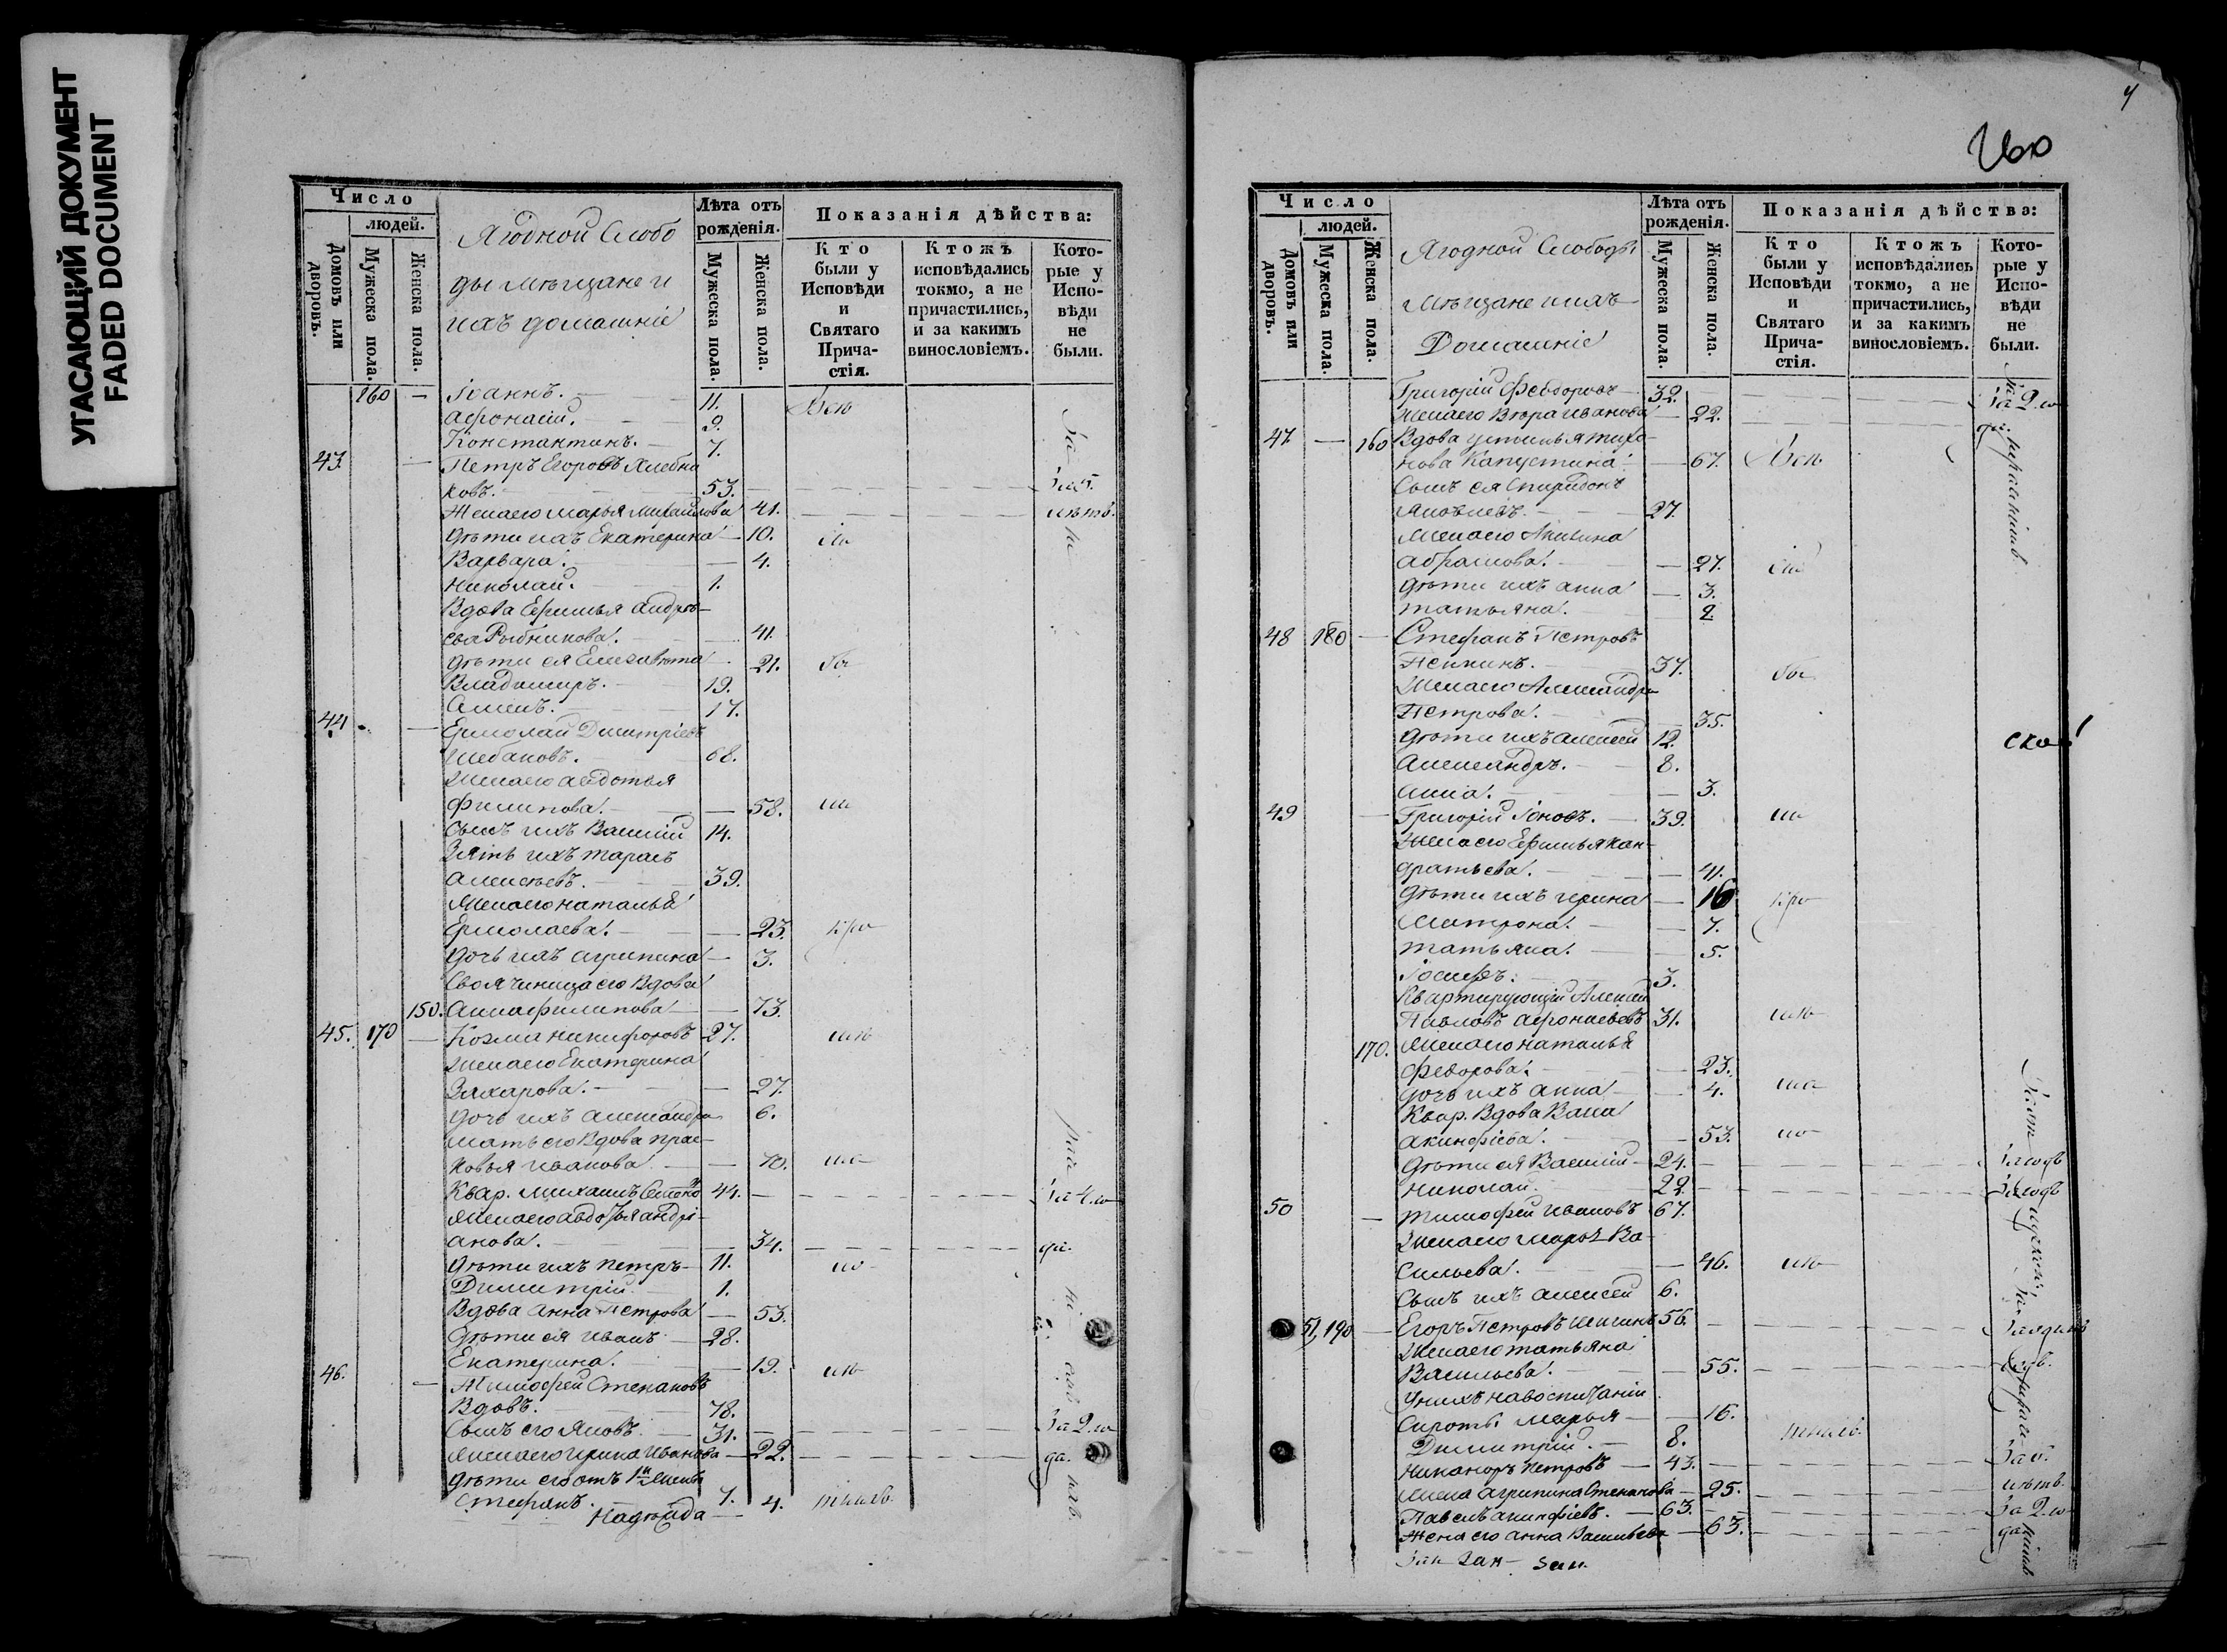 УГАСАЮЩИЙ ДОКУМЕНТ
FADED DOCUMENT
Число
людей.
Домовъ или дворовъ.
Мужеска пола.
Женска пола.
Ягодной Слобо
ды мѣщане и
ихъ домашніе
Лѣта отъ рожденія.
Мужеска пола.
Женска пола.
Показанія дѣйства:
Кто были у Исповѣди и Святаго Причастія.
Ктожъ исповѣдались токмо, а не причастились, и за какимъ винословіемъ.
Которые у Исповѣди не были.
160 — Іоаннъ. 11.
Афонасій. 9.
Константинъ. 7.
43. — Петръ Егоровъ Хлебни
ковъ. 53.
Жена его Марья Михайлова 41.
дѣти ихъ Екатерина 10.
Варвара. — 4.
Николай. 1.
Вдова Ефимья Андрее-
ва Рыбникова. — 41.
дѣти ея Елизавета 21.
Владимиръ. 19.
17.
44 — Ермолай Димитріевъ
Шебановъ. 68.
Жена его Авдотья
Филипова. — 58.
Сынъ ихъ Василій 14.
Зять ихъ Тарасъ
Алексѣевъ. 39.
Жена его Наталья
Ермолаева. — 23.
дочь ихъ Агрипина — 3.
Своячиница его Вдова
150. Анна Филипова — 73.
45. 170 — Козма Никифоровъ 27.
Жена его Екатерина
Захарова. — 27.
дочь ихъ Александра 6.
мать его Вдова Прас-
ковья Иванова. — 70.
Квар. Михаилъ 44. за 4. го
Жена его Авдотья Андрі-
анова. — 34. да.
дѣти ихъ Петръ — 11.
Димитрій. 1.
Вдова Анна Петрова — 53.
Дѣти ея Иванъ — 28.
Екатерина. — 19.
46. — Тимофей Степановъ
Вдовъ. 78.
Сынъ его Яковъ. 31. за 2. го
Жена его Ирина Иванова — 22. да.
дѣти его отъ 1й жены
Стефанъ. 7.
Надежда — 4.
260
Число
людей.
Домовъ или дворовъ.
Мужеска пола.
Женска пола.
Ягодной Слободы
Мѣщане и ихъ
Домашніе
Лѣта отъ рожденія.
Мужеска пола.
Женска пола.
Показанія дѣйства:
Кто были у Исповѣди и Святаго Причастія.
Ктожъ исповѣдались токмо, а не причастились, и за какимъ винословіемъ.
Которые у Исповѣди не были.
Григорій Феодоровъ 32. за 2. го
Жена его Иванова — 22. да.
47 — 160 Вдова Устинья Тихо-
нова Капустина. — 67.
Сынъ ея Спиридонъ
Яковлевъ. 27.
Жена его Акилина
Абрамова. — 27.
дѣти ихъ Анна — 3.
Татьяна. 2
48 180 — Стефанъ Петровъ
37.
Жена его Александра
Петрова. — 35.
дѣти ихъ Алексей 12.
Александръ. 8.
Анна. — 3.
49 — Григорій Іоновъ. 39.
Жена его Ефимья Кон-
дратьева. — 41.
дѣти ихъ Ирина — 16
Матрона. — 7.
Татьяна. — 5.
Іосифъ. 3.
Квартирующій Алексей
Павловъ Афонасьевъ 31.
170. Жена его Наталья
Федорова. — 23.
дочь ихъ Анна — 4.
Квар. Вдова
Акинфіева. — 53.
дѣти ея Василій 24.
Николай. 22.
50 — Тимофей Ивановъ 67.
Жена его Марья Ва-
сильева. — 46.
Сынъ ихъ Алексей 6.
51, 190 — Егоръ Петровъ 56.
Жена его Татьяна
Васильева. — 55.
У нихъ на воспитаніи
Сироты Марья — 16.
Димитрій. 8.
Никаноръ Петровъ — 43. за 5.
Жена Агрипина Степанова — 25. лѣтъ.
Павелъ Акинфіевъ. — 63. за 2. го
Жена его Анна Васильева — 63. да